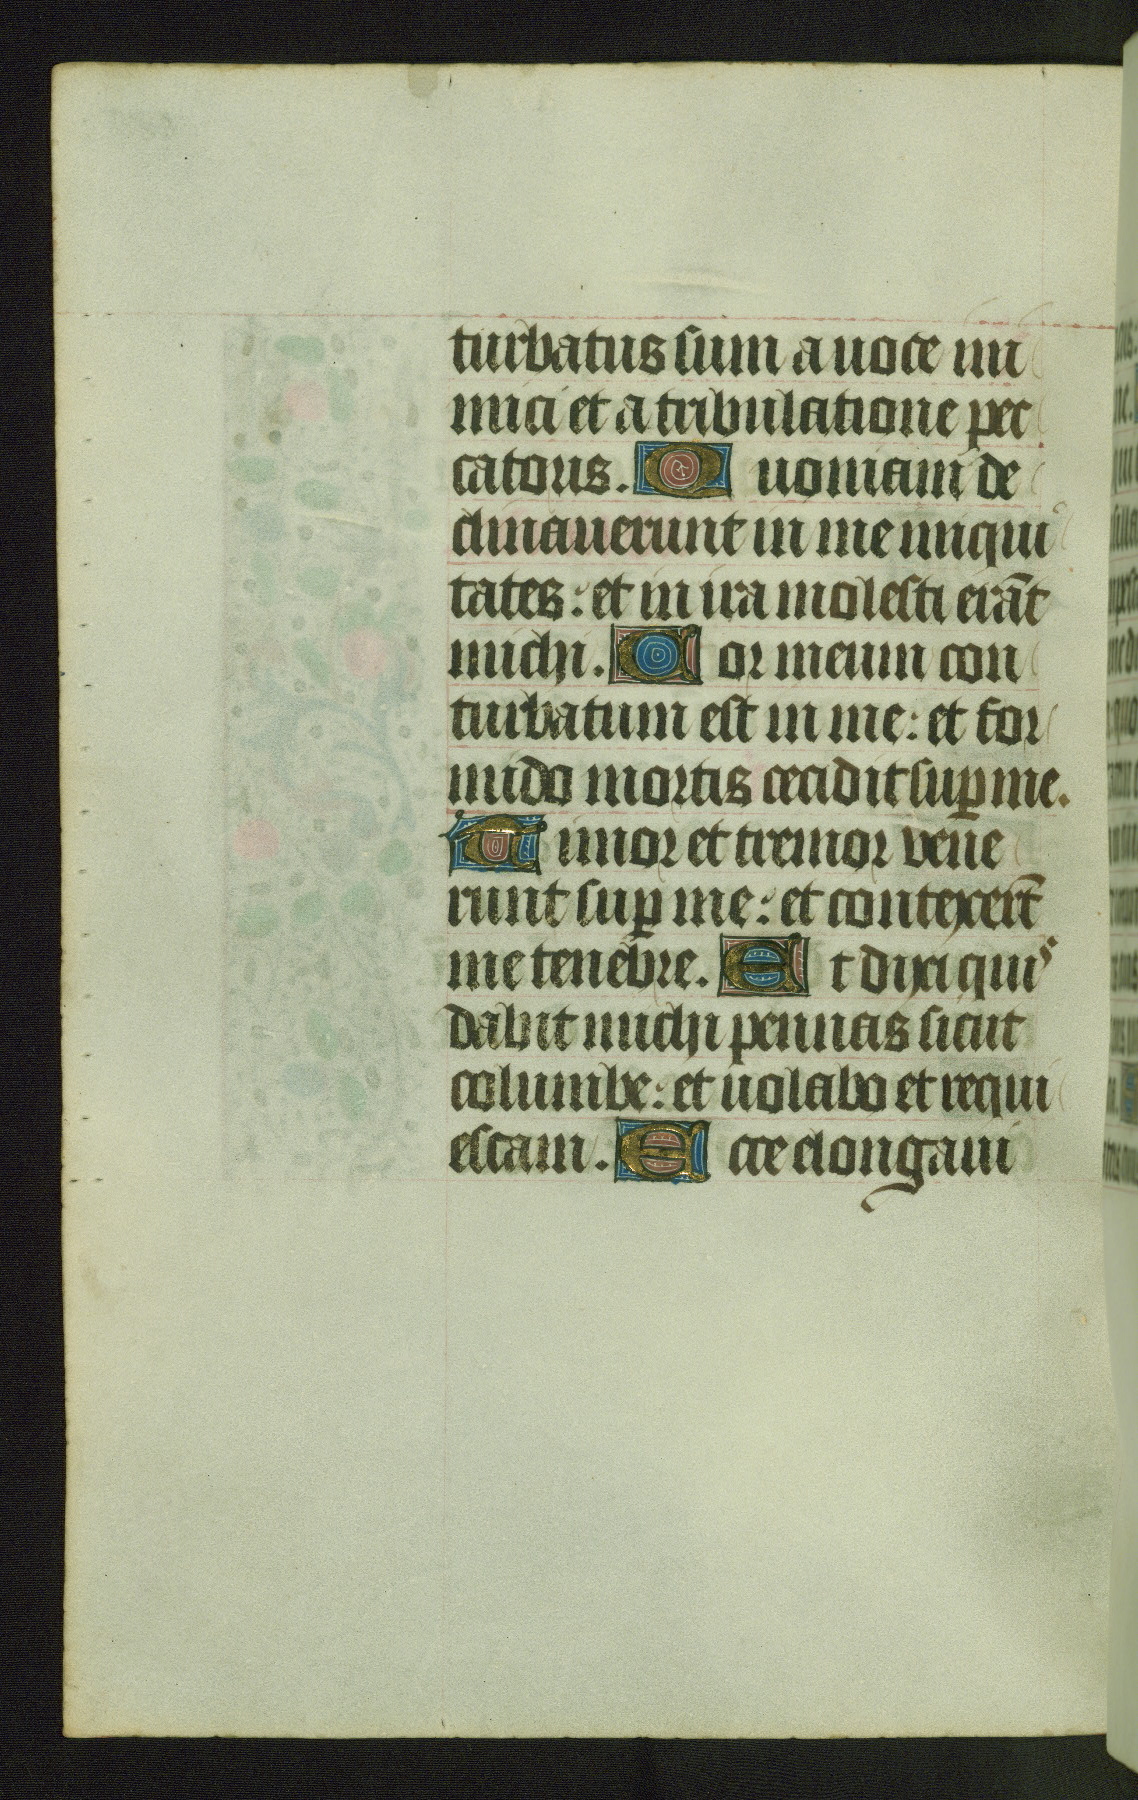 turbatus sum a uoce ini
mici et a tribulatione pec
catoris. Quoniam de
clinauerunt in me iniqui
tates: et in ira molesti erāt
michi. Cor meum con
turbatum est in me: et for
mido mortis cecidit sup̱ me.
Timor et tremor vene
runt sup̱ me: et contexer̄t
me tenebre. Et dixi quis
dabit michi pennas sicut
columbe: et uolabo et requi
escam. Ecce elongaui